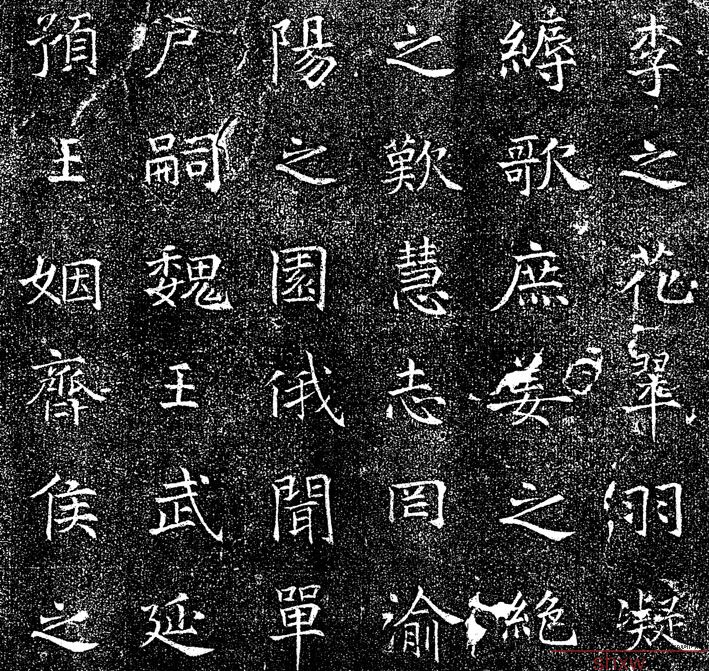 李之花翠羽凝
縟歌庶姜之絕
之歎慧志罔渝
陽之園俄聞單
戶嗣魏王武延
預王姻齊侯之